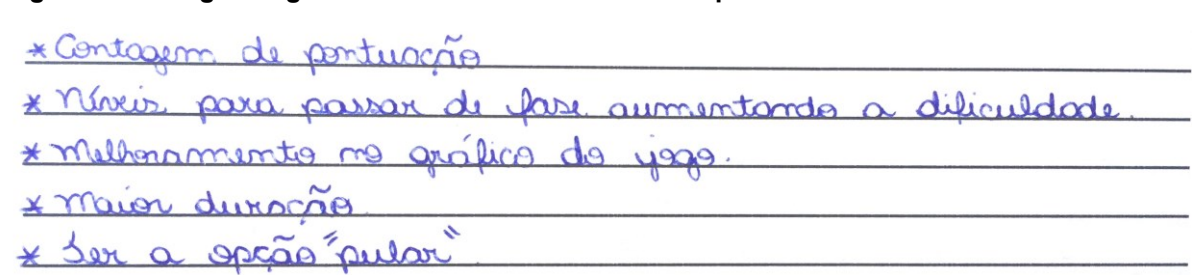 * Contagem de pontuação
* Níveis para passar de fase aumentando a dificuldade.
* Melhoramento no gráfico do jogo.
* Maior duração
* Ter a opção "pular"